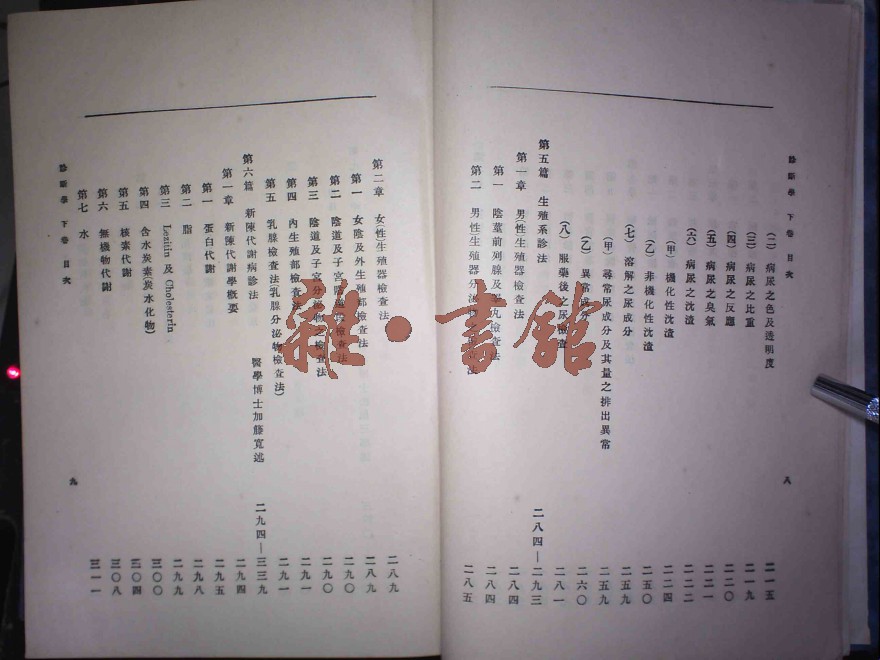 診斷學 下卷 目次
(二) 病尿之色及透明度 二一五
(三) 病尿之比重 二一九
(四) 病尿之反應 二二〇
(五) 病尿之臭氣 二二一
(六) 病尿之沈渣 二二二
(甲) 機化性沈渣 二二四
(乙) 非機化性沈渣 二五〇
(七) 溶解之尿成分 二五九
(甲) 尋常尿成分及其量之排出異常 二五九
(乙) 異常成分 二六〇
(八) 服藥後之尿檢查 二八一
第五篇 生殖系診法 二八四—二九三
第一章 男(性)生殖器檢查法 二八四
第一 陰莖前列腺及睾丸檢查法 二八四
第二 男(性)生殖器分泌物之檢查法 二八五
八
第二章 女(性)生殖器檢查法 二八九
第一 女陰及外生殖部檢查法 二九〇
第二 陰道及子宮檢查法 二九〇
第三 陰道及子宮分泌物之檢查法 二九一
第四 內生殖部檢查法 二九一
第五 乳腺檢查法(乳腺分泌物檢查法)
第六篇 新陳代謝病診法 醫學博士加藤寬述 二九四—三三九
第一章 新陳代謝學概要 二九四
第一 蛋白代謝 二九五
第二 脂 二九八
第三 Lezitin 及 Cholesterin 二九九
第四 含水炭素(炭水化物) 三〇〇
第五 核素代謝 三〇四
第六 無機物代謝 三〇八
第七 水 三一一
診斷學 下卷 目次
九
雜·書館